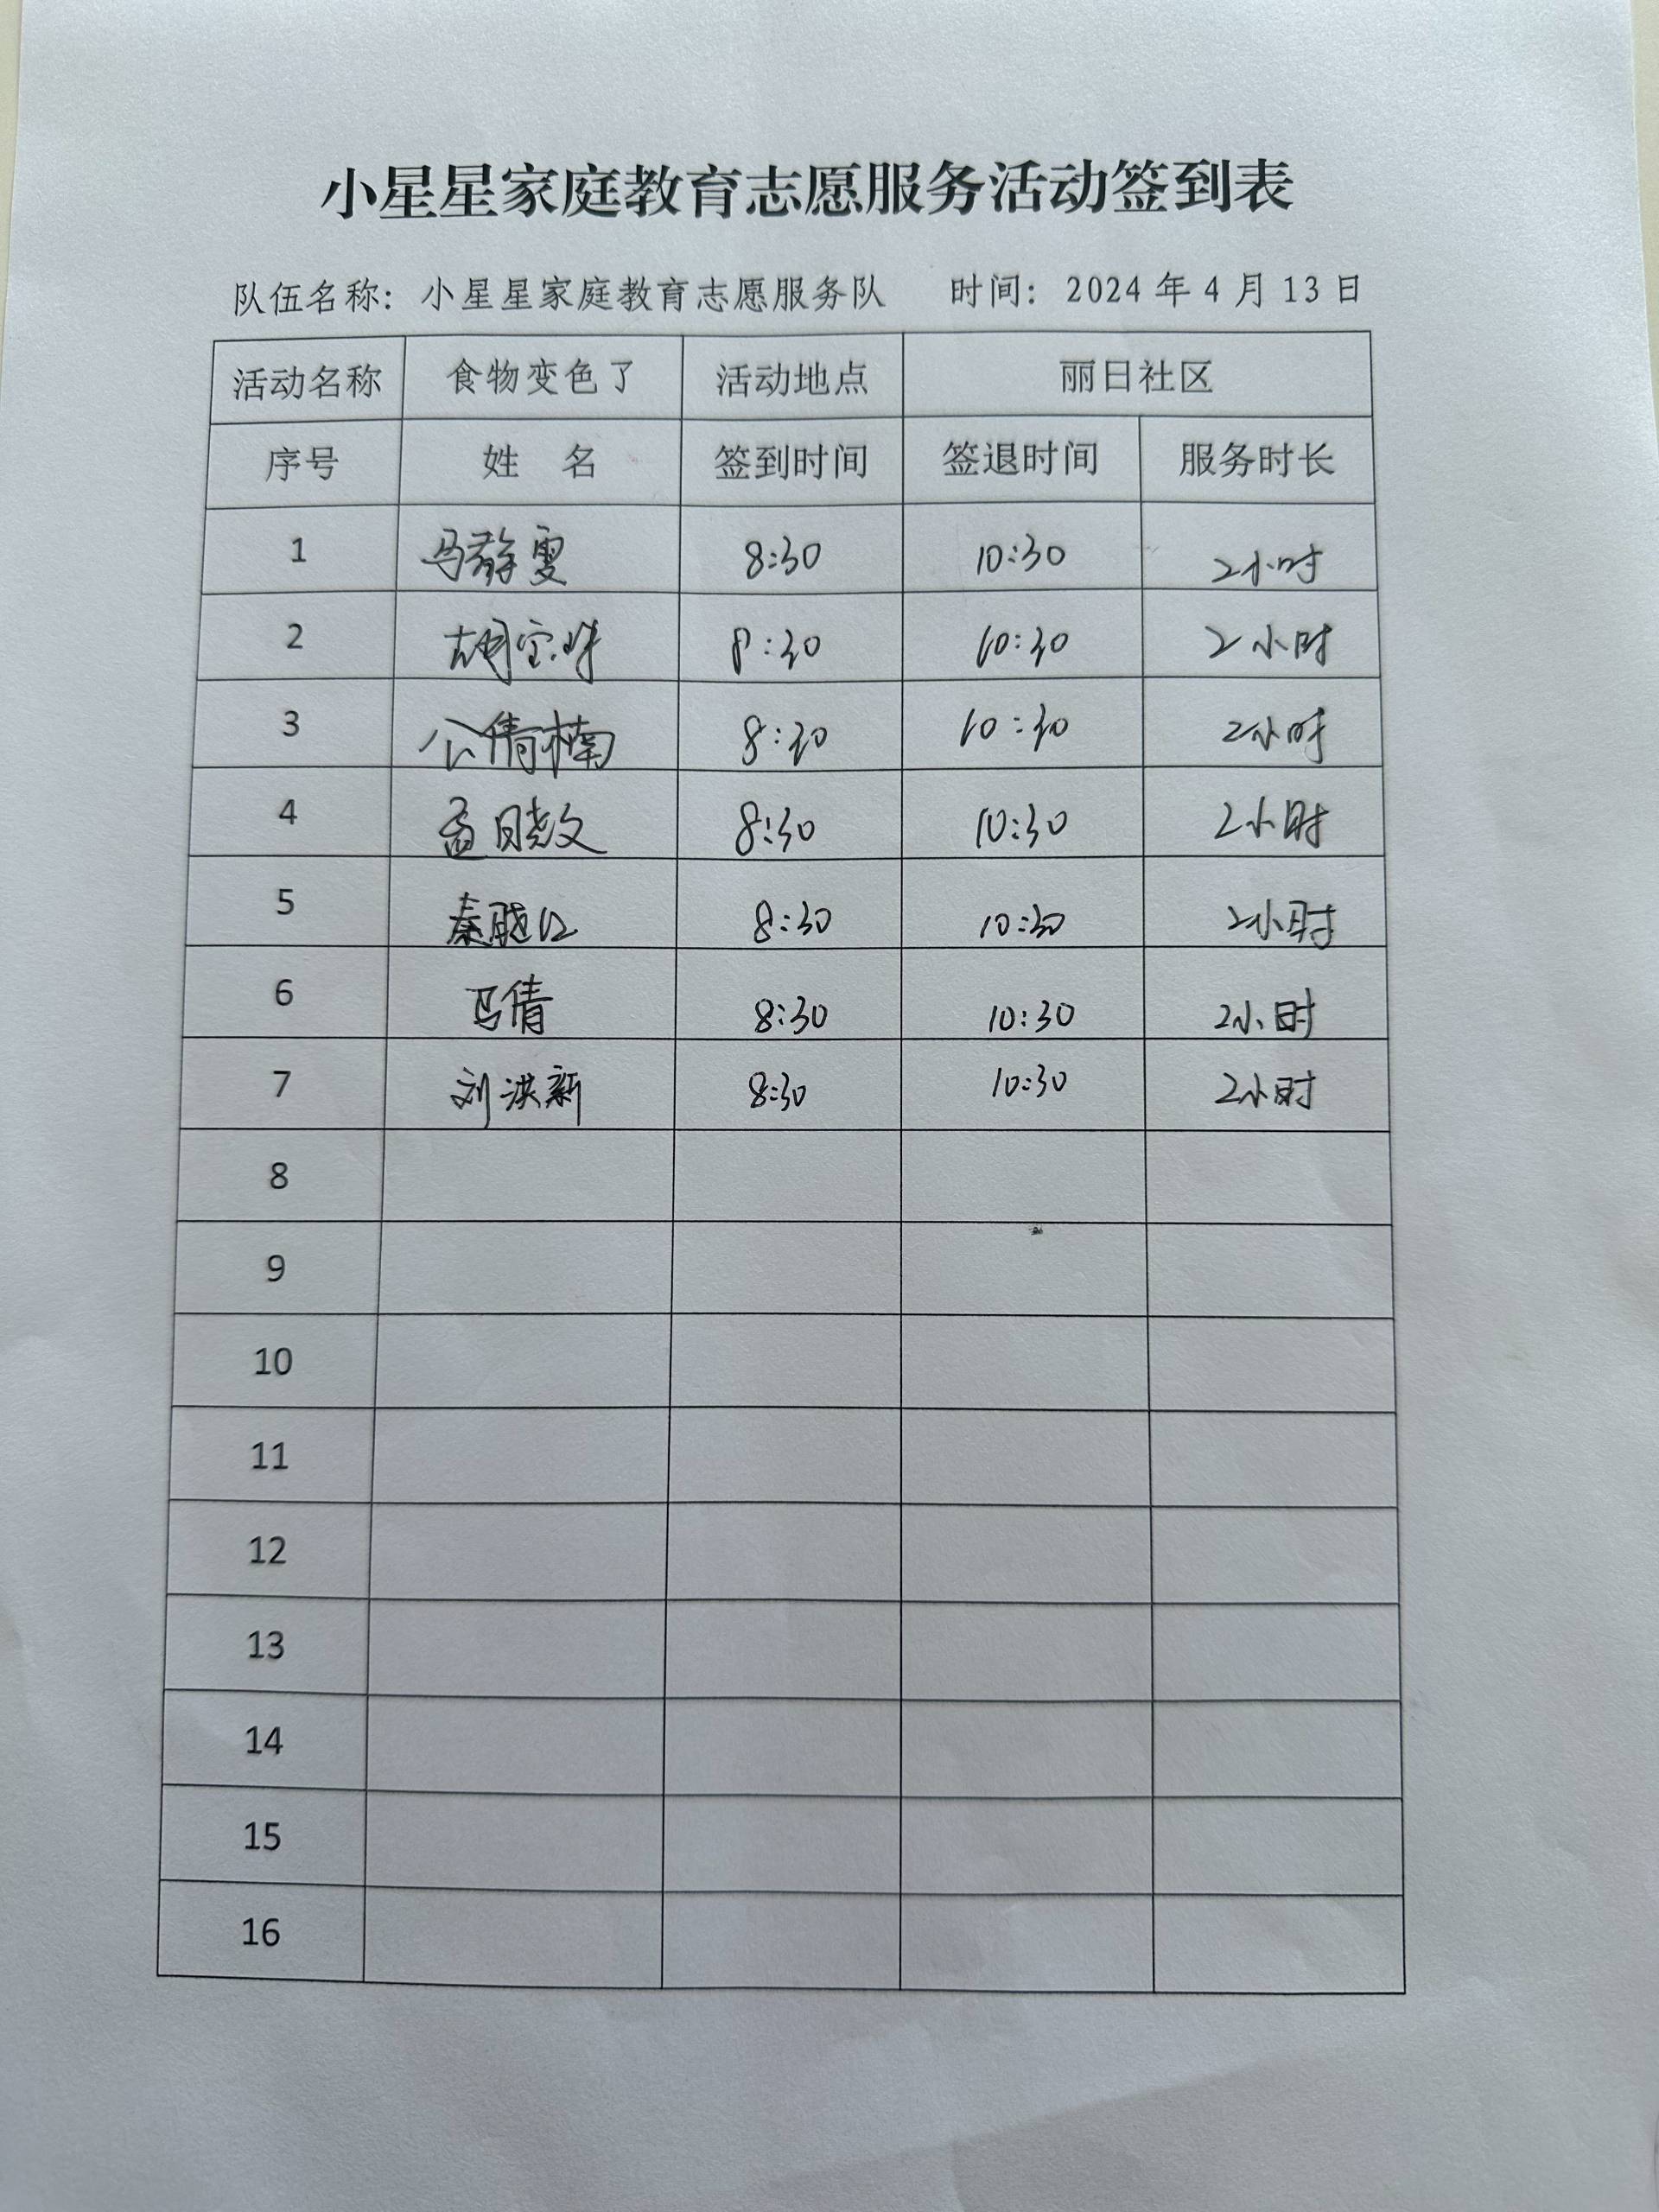 小星星家庭教育志愿服务活动签到表
队伍名称：小星星家庭教育志愿服务队 时间：2024年4月13日
活动名称 食物变色了 活动地点 丽日社区
序号 姓 名 签到时间 签退时间 服务时长
1 马静雯 8:30 10:30 2小时
2 胡宝珠 8:30 10:30 2小时
3 公倩楠 8:30 10:30 2小时
4 孟晓文 8:30 10:30 2小时
5 秦 8:30 10:30 2小时
6 马倩 8:30 10:30 2小时
7 刘洪新 8:30 10:30 2小时
8
9
10
11
12
13
14
15
16